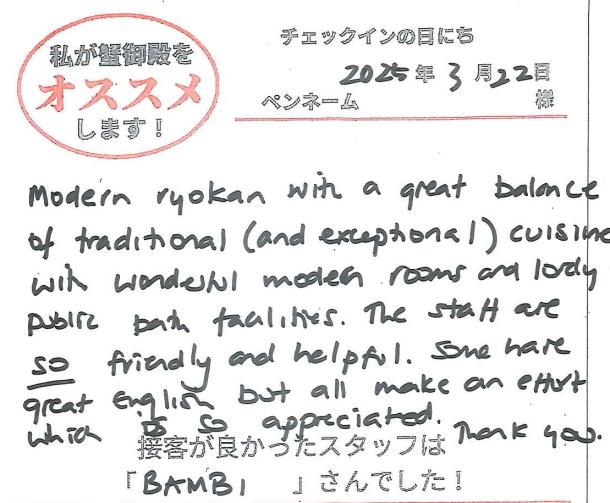 私が蟹御殿を
オススメ
します！
チェックインの日にち
2025年3月22日
ペンネーム 様
Modern ryokan with a great balance
of traditional (and exceptional) cuisine
with wonderful modern rooms and lovely
public bath facilities. The staff are
so friendly and helpful. Some have
great English but all make an effort
which is so appreciated. Thank you.
接客が良かったスタッフは
「BAMBI 」さんでした！